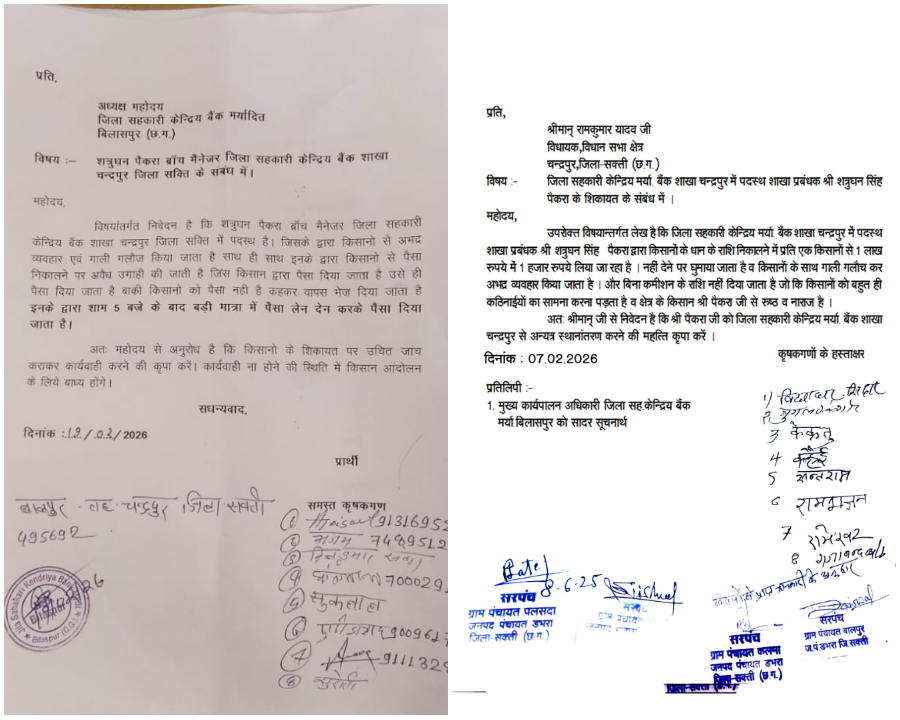 प्रति,
अध्यक्ष महोदय
जिला सहकारी केन्द्रिय बैंक मर्यादित
बिलासपुर (छ.ग.)
विषय :– शत्रुघन पैकरा ब्रॉच मैनेजर जिला सहकारी केन्द्रिय बैंक शाखा
चन्द्रपुर जिला सक्ति के संबंध में।
महोदय,
विषयांतर्गत निवेदन है कि शत्रुघन पैकरा ब्रॉच मैनेजर जिला सहकारी
केन्द्रिय बैंक शाखा चन्द्रपुर जिला सक्ति में पदस्थ है। जिसके द्वारा किसानो से अभद्र
व्यवहार एवं गाली गलौज किया जाता है साथ ही साथ इनके द्वारा किसानो से पैसा
निकालने पर अवैध उगाही की जाती है जिस किसान द्वारा पैसा दिया जाता है उसे ही
पैसा दिया जाता है बाकी किसानो को पैसा नही है कहकर वापस भेज दिया जाता है
इनके द्वारा शाम 5 बजे के बाद बड़ी मात्रा में पैसा लेन देन करके पैसा दिया
जाता है।
अतः महोदय से अनुरोध है कि किसानो के शिकायत पर उचित जांच
कराकर कार्यवाही करने की कृपा करें। कार्यवाही ना होने की स्थिति में किसान आंदोलन
के लिये बाध्य होंगे।
सधन्यवाद,
दिनांक :19/02/2026
प्रार्थी
समस्त कृषकगण
बालपुर . तह. चन्द्रपुर जिला सक्ती
495692
① 9131695
② 7489512
④ 700029
⑤ सुकलाल
⑥ 900961
⑦ 911132
⑧
Jila Sahakari Kendriya Bank
Bilaspur (C.G.)
प्रति,
श्रीमान् रामकुमार यादव जी
विधायक,विधान सभा क्षेत्र
चन्द्रपुर,जिला-सक्ती (छ.ग.)
विषय :- जिला सहकारी केन्द्रिय मर्या. बैंक शाखा चन्द्रपुर में पदस्थ शाखा प्रबंधक श्री शत्रुघन सिंह
पैकरा के शिकायत के संबंध में ।
महोदय,
उपरोक्त विषयान्तर्गत लेख है कि जिला सहकारी केन्द्रिय मर्या. बैंक शाखा चन्द्रपुर में पदस्थ
शाखा प्रबंधक श्री शत्रुघन सिंह पैकरा द्वारा किसानों के धान के राशि निकालने में प्रति एक किसानों से 1 लाख
रुपये में 1 हजार रुपये लिया जा रहा है । नहीं देने पर घुमाया जाता है व किसानों के साथ गाली गलौच कर
अभद्र व्यवहार किया जाता है । और बिना कमीशन के राशि नहीं दिया जाता है जो कि किसानों को बहुत ही
कठिनाईयों का सामना करना पड़ता है व क्षेत्र के किसान श्री पैकरा जी से रुष्ठ व नाराज है ।
अतः श्रीमान् जी से निवेदन है कि श्री पैकरा जी को जिला सहकारी केन्द्रिय मर्या. बैंक शाखा
चन्द्रपुर से अन्यत्र स्थानांतरण करने की महत्ति कृपा करें ।
दिनांक : 07.02.2026
कृषकगणों के हस्ताक्षर
प्रतिलिपी :-
1. मुख्य कार्यपालन अधिकारी जिला सह.केन्द्रिय बैंक
मर्या.बिलासपुर को सादर सूचनार्थ
1)
2
3 केकतु
4
5 सन्तराम
6 रामभजन
7 रामेश्वर
8
8-6-25
सरपंच
ग्राम पंचायत पलसदा
जनपद पंचायत डभरा
जिला-सक्ती (छ.ग.)
सरपंच
ग्राम पंचायत कलमा
जनपद पंचायत डभरा
जिला-सक्ती (छ.ग.)
सरपंच
ग्राम पंचायत बालपुर
ज.पं.डभरा जि.सक्ती